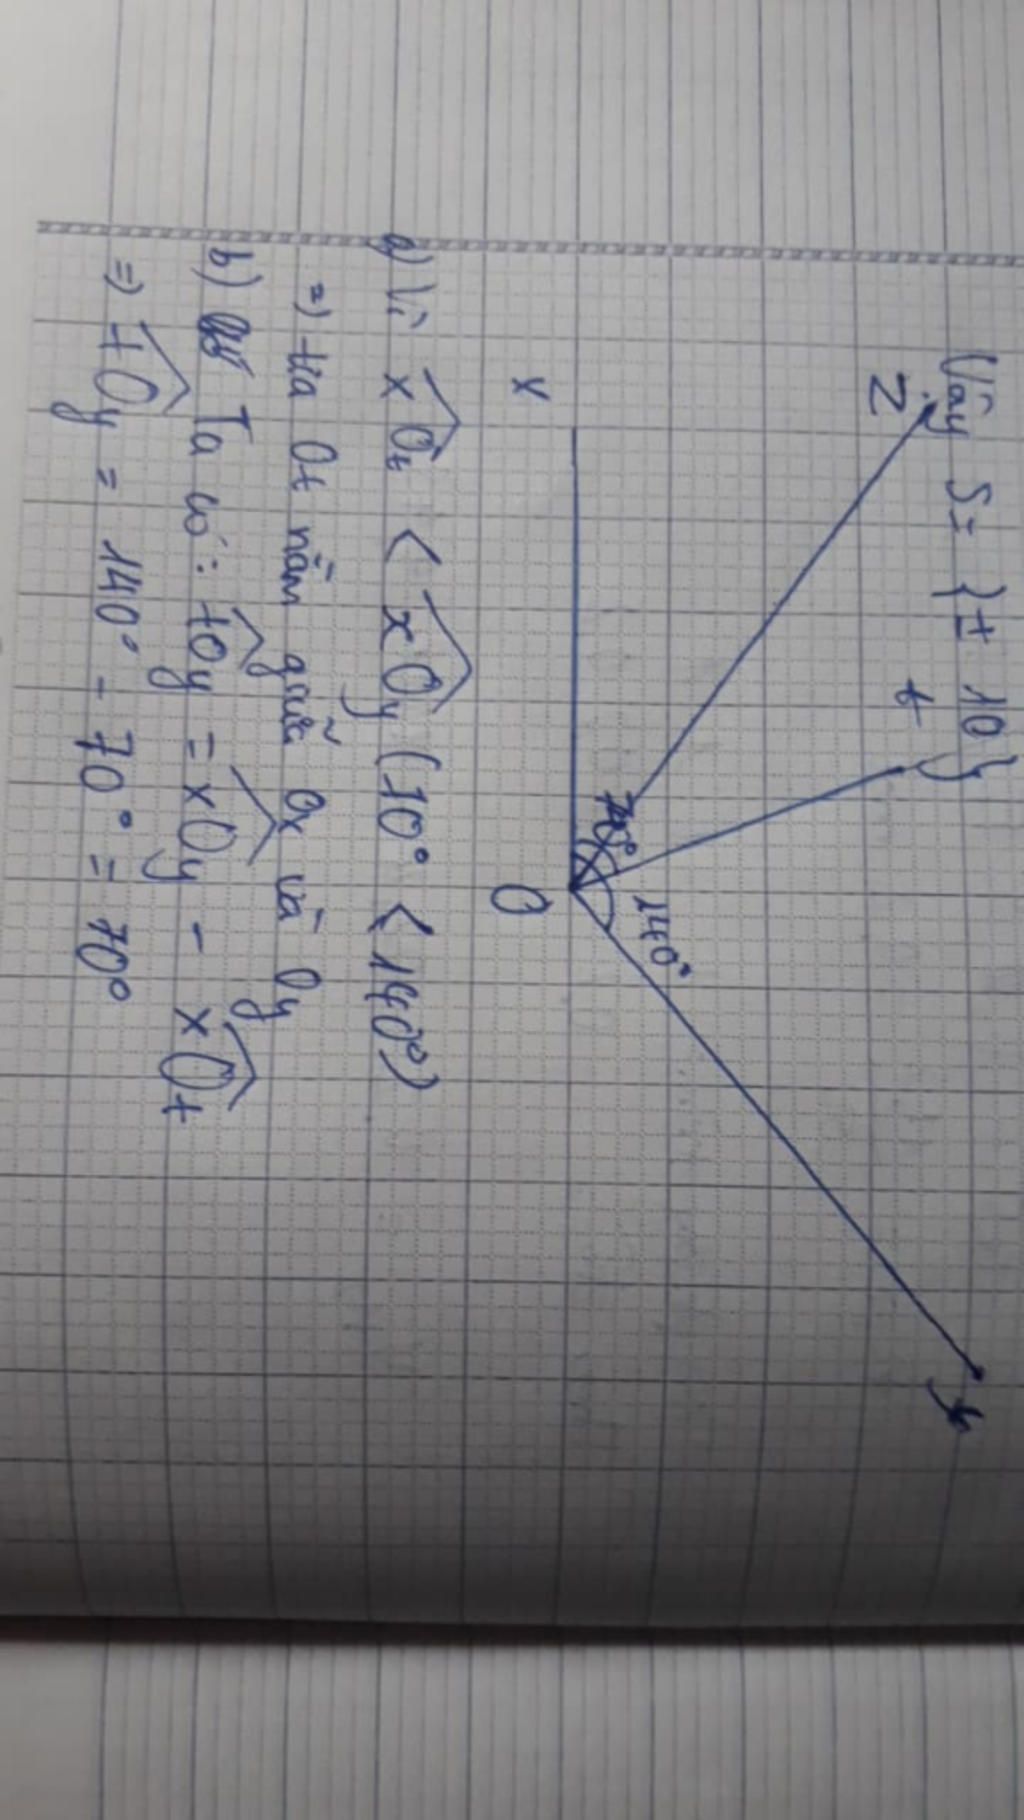 Vậy S = {± 10}
z
t
y
70°
140°
x
O
a) Vì xOt < xOy (70° < 140°)
=) tia Ot nằm giữa Ox và Oy
b) Ta có: tOy = xOy - xOt
=) tOy = 140° - 70° = 70°